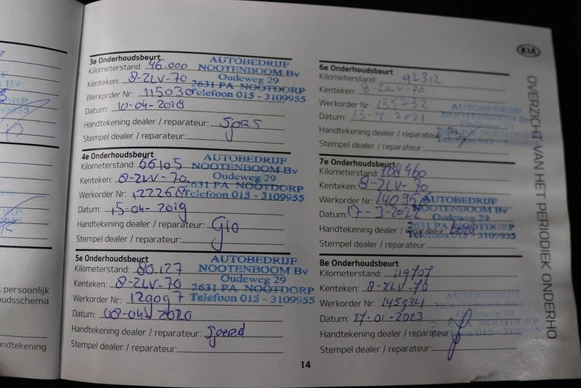 3e Onderhoudsbeurt
Kilometerstand: 46.000
Kenteken: 8-ZLV-70
Werkorder Nr: 115030
Datum: 10-04-2018
Handtekening dealer / reparateur: Sjors
Stempel dealer / reparateur:
AUTOBEDRIJF
NOOTENBOOM Bv
Oudeweg 29
2631 PA NOOTDORP
Telefoon 015 - 3109955
4e Onderhoudsbeurt
Kilometerstand: 66105
Kenteken: 8-ZLV-70
Werkorder Nr: 122268
Datum: 15-04-2019
Handtekening dealer / reparateur: Gio
Stempel dealer / reparateur:
AUTOBEDRIJF
NOOTENBOOM Bv
Oudeweg 29
2631 PA NOOTDORP
Telefoon 015 - 3109955
5e Onderhoudsbeurt
Kilometerstand: 80.127
Kenteken: 8-ZLV-70
Werkorder Nr: 129097
Datum: 08-04-2020
Handtekening dealer / reparateur: Sjoerd
Stempel dealer / reparateur:
AUTOBEDRIJF
NOOTENBOOM Bv
Oudeweg 29
2631 PA NOOTDORP
Telefoon 015 - 3109955
6e Onderhoudsbeurt
Kilometerstand: 92312
Kenteken: 8-ZLV-70
Werkorder Nr: 135232
Datum: 13-4-2021
Handtekening dealer / reparateur:
Stempel dealer / reparateur:
7e Onderhoudsbeurt
Kilometerstand: 108460
Kenteken: 8-ZLV-70
Werkorder Nr:
Datum: 17-3-2022
Handtekening dealer / reparateur:
Stempel dealer / reparateur:
AUTOBEDRIJF
NOOTENBOOM Bv
Oudeweg 29
2631 PA NOOTDORP
Telefoon 015 - 3109955
8e Onderhoudsbeurt
Kilometerstand: 119707
Kenteken: 8-ZLV-70
Werkorder Nr: 145534
Datum: 27-01-2023
Handtekening dealer / reparateur:
Stempel dealer / reparateur:
KIA
OVERZICHT VAN HET PERIODIEK ONDERHO
persoonlijk
oudsschema
ndtekening
14